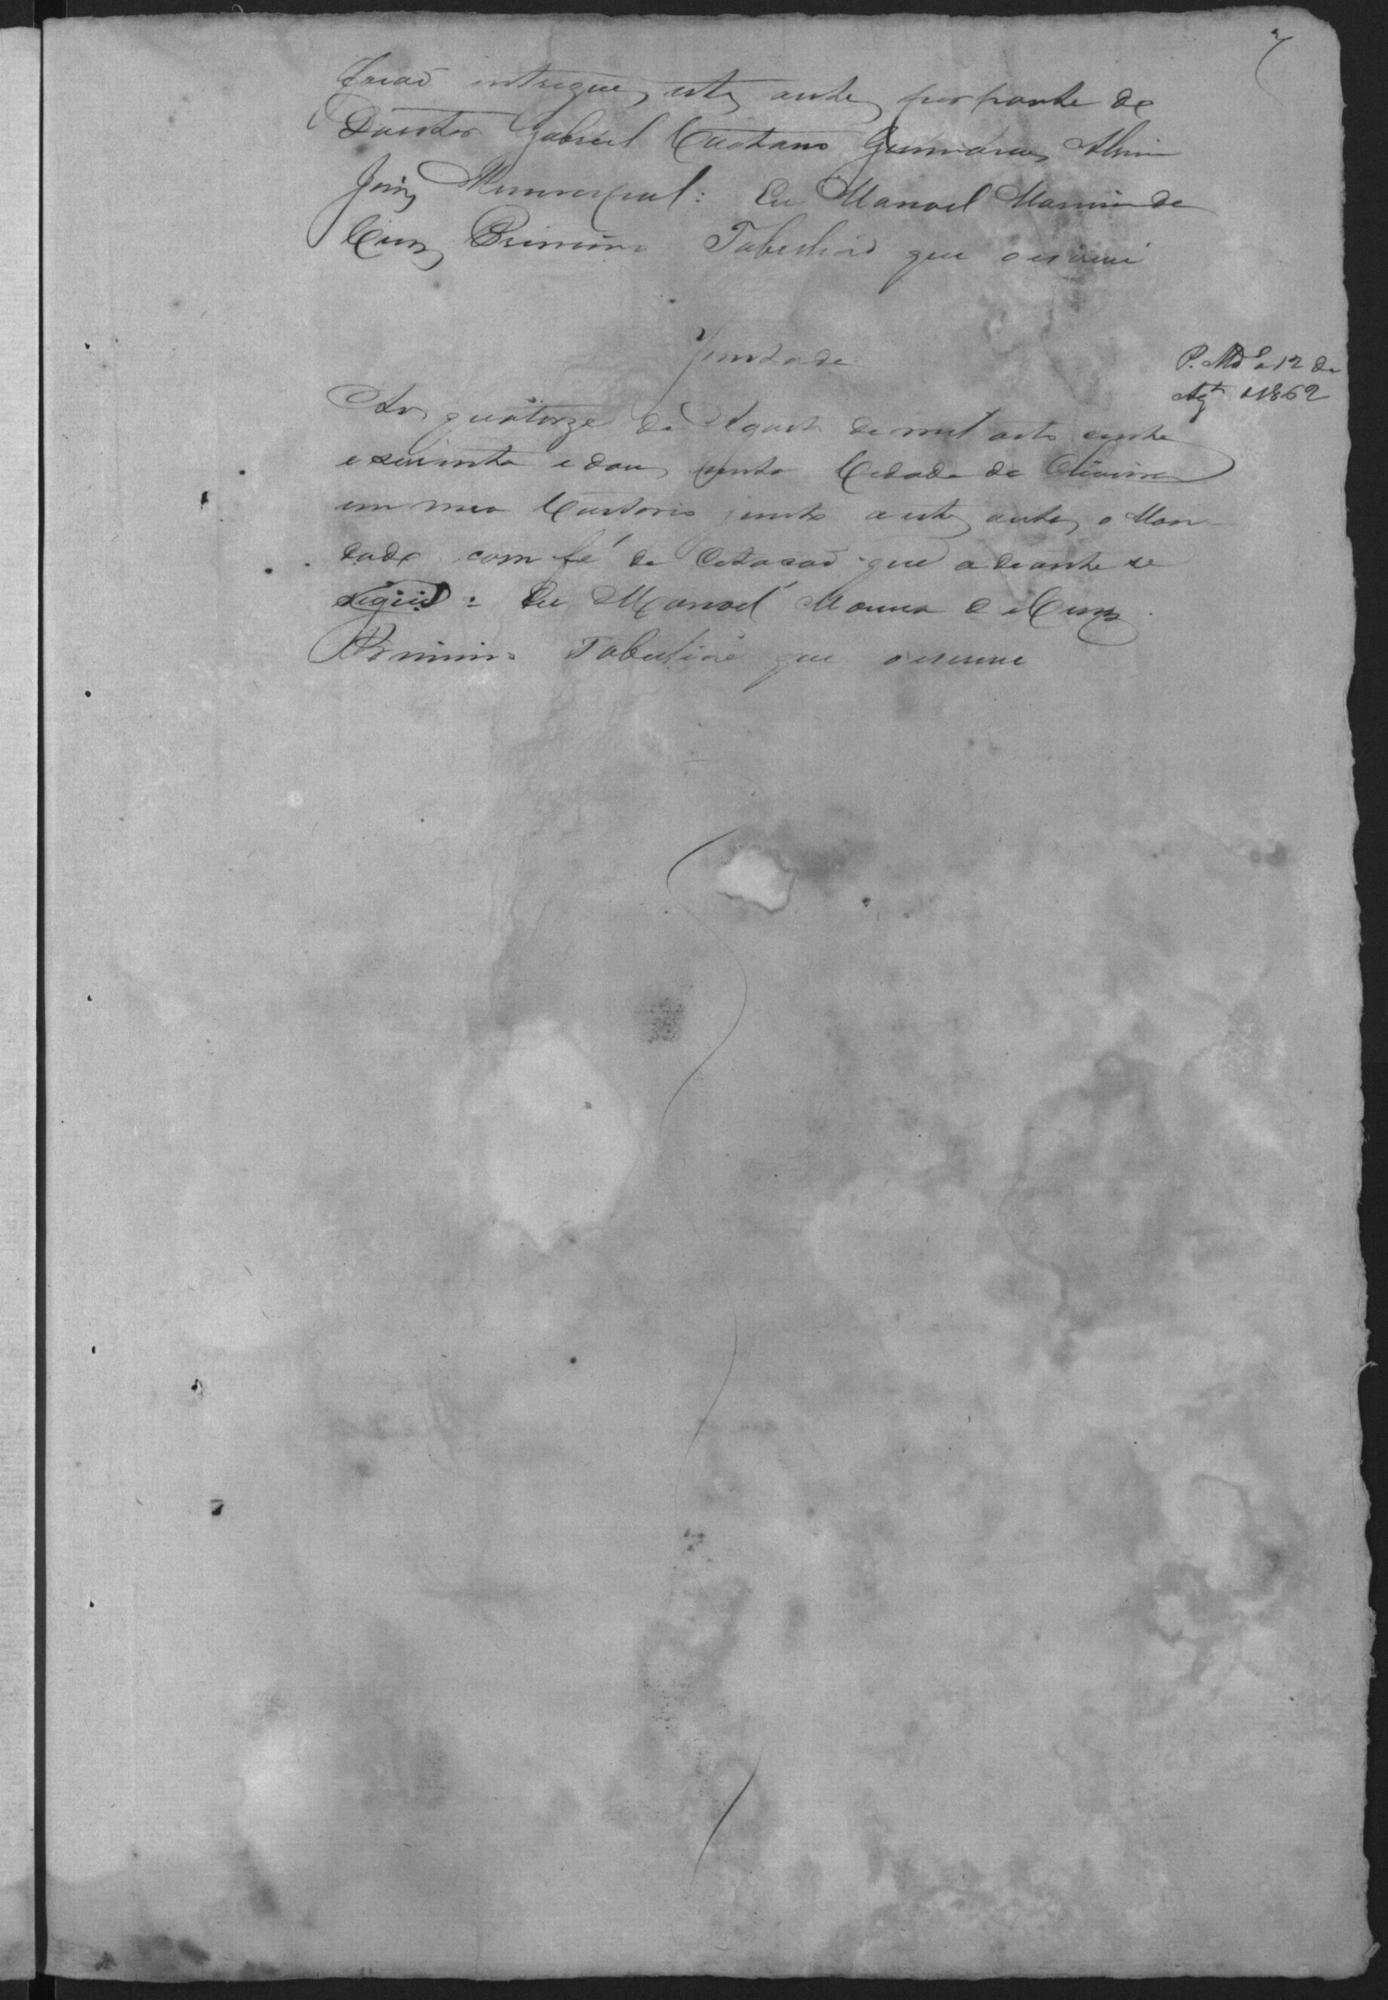 7
forão entregues estes autos por parte do
Doutor Gabriel Caetano Guimarães Alvim
Juiz Municipal: Eu Manoel Maria da
Cruz Primeiro Tabelião que o escrevi
Juntada
P. Md.º a 12 de
Ag.to 1862
Aos quatorze de Agosto de mil oito centos
e secenta e dous nesta Cidade da Oliveira
em meo Cartorio junto a estes autos o Man-
dado com fé de Citação que a diante se
segue: Eu Manoel Maria da Cruz
Primeiro Tabelião que o escrevi